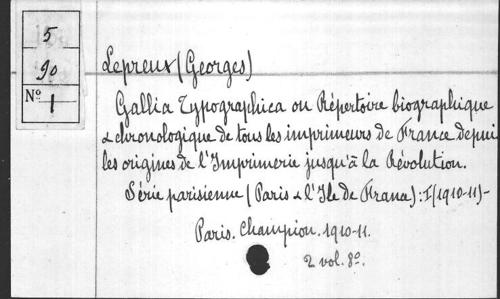 5
90
Nº 1
Lepreux (Georges)
Gallia Typographica ou Répertoire biographique
& chronologique de tous les imprimeurs de France depuis
les origines de l'Imprimerie jusqu'à la Révolution.
Série parisienne (Paris & l'Ile de France): I (1910-11)-
Paris. Champion. 1910-11.
2 vol. 8º.